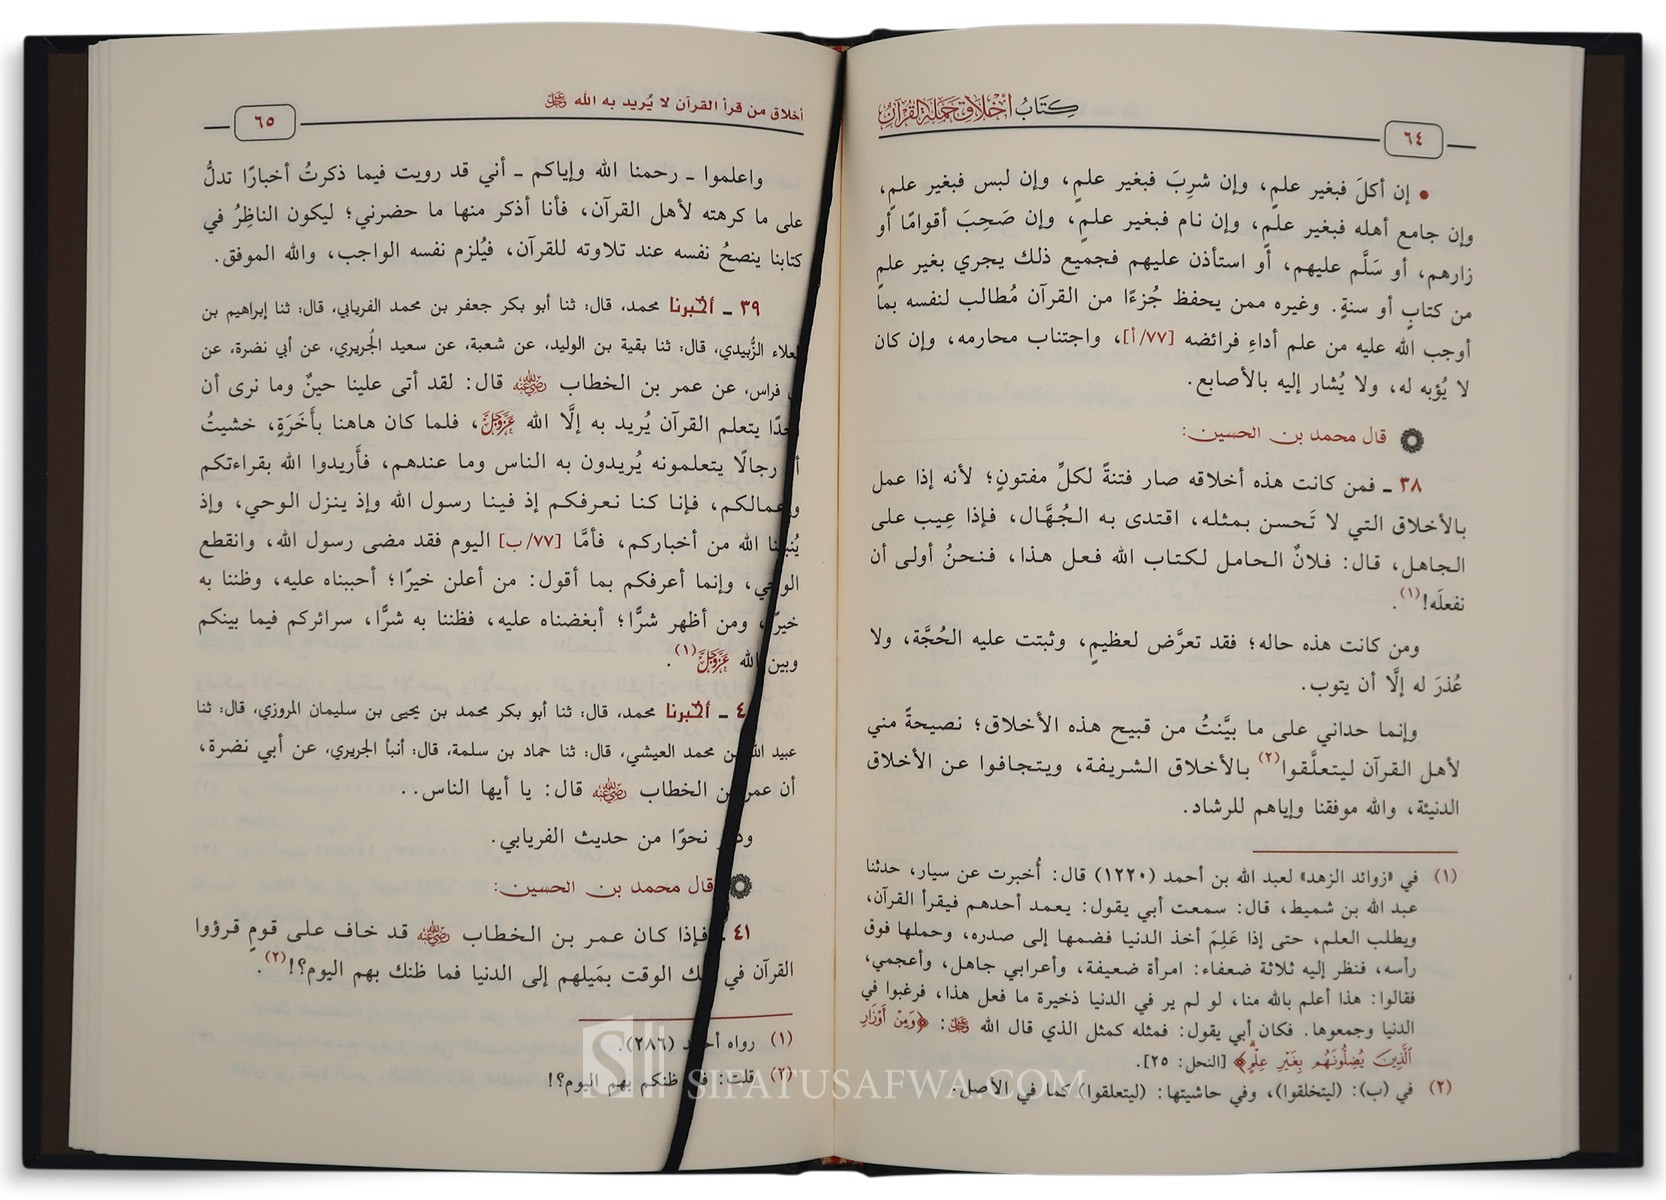 كِتَابُ أَخْلَاقِ حَمَلَةِ القُرْآنِ
٦٤
• إن أكلَ فبغير علمٍ، وإن شرِبَ فبغير علمٍ، وإن لبس فبغير علمٍ،
وإن جامع أهله فبغير علمٍ، وإن نام فبغير علمٍ، وإن صَحِبَ أقوامًا أو
زارهم، أو سَلَّم عليهم، أو استأذن عليهم فجميع ذلك يجري بغير علمٍ
من كتابٍ أو سنةٍ. وغيره ممن يحفظ جُزءًا من القرآن مُطالب لنفسه بما
أوجب الله عليه من علم أداءِ فرائضه [٧٧/أ]، واجتناب محارمه، وإن كان
لا يُؤبه له، ولا يُشار إليه بالأصابع.
قال محمد بن الحسين:
٣٨ ـ فمن كانت هذه أخلاقه صار فتنةً لكلِّ مفتونٍ؛ لأنه إذا عمل
بالأخلاق التي لا تَحسن بمثله، اقتدى به الجُهَّال، فإذا عِيب على
الجاهل، قال: فلانٌ الحامل لكتاب الله فعل هذا، فنحنُ أولى أن
نفعلَه!(١).
ومن كانت هذه حاله؛ فقد تعرَّض لعظيمٍ، وثبتت عليه الحُجَّة، ولا
عُذرَ له إلَّا أن يتوب.
وإنما حداني على ما بيَّنتُ من قبيح هذه الأخلاق؛ نصيحةً مني
لأهل القرآن ليتعلَّقوا(٢) بالأخلاق الشريفة، ويتجافوا عن الأخلاق
الدنيئة، والله موفقنا وإياهم للرشاد.
(١) في «زوائد الزهد» لعبد الله بن أحمد (١٢٢٠) قال: أُخبرت عن سيار، حدثنا
عبد الله بن شميط، قال: سمعت أبي يقول: يعمد أحدهم فيقرأ القرآن،
ويطلب العلم، حتى إذا عَلِمَ أخذ الدنيا فضمها إلى صدره، وحملها فوق
رأسه، فنظر إليه ثلاثة ضعفاء: امرأة ضعيفة، وأعرابي جاهل، وأعجمي،
فقالوا: هذا أعلم بالله منا، لو لم ير في الدنيا ذخيرة ما فعل هذا، فرغبوا في
الدنيا وجمعوها. فكان أبي يقول: فمثله كمثل الذي قال الله ﷿: ﴿وَمِنْ أَوْزَارِ
الَّذِينَ يُضِلُّونَهُم بِغَيْرِ عِلْمٍ﴾ [النحل: ٢٥].
(٢) في (ب): (ليتخلقوا)، وفي حاشيتها: (ليتعلقوا) كما في الأصل.
أخلاق من قرأ القرآن لا يُريد به الله ﷿
٦٥
واعلموا ـ رحمنا الله وإياكم ـ أني قد رويت فيما ذكرتُ أخبارًا تدلُّ
على ما كرهته لأهل القرآن، فأنا أذكر منها ما حضرني؛ ليكون الناظِرُ في
كتابنا ينصحُ نفسه عند تلاوته للقرآن، فيُلزم نفسه الواجب، والله الموفق.
٣٩ ـ أخبرنا محمد، قال: ثنا أبو بكر جعفر بن محمد الفريابي، قال: ثنا إبراهيم بن
العلاء الزُّبيدي، قال: ثنا بقية بن الوليد، عن شعبة، عن سعيد الجُريري، عن أبي نضرة، عن
فراس، عن عمر بن الخطاب رضي الله عنه قال: لقد أتى علينا حينٌ وما نرى أن
أحدًا يتعلم القرآن يُريد به إلَّا الله عَزَّوَجَلَّ، فلما كان هاهنا بأَخَرَةٍ، خشيتُ
أن رجالًا يتعلمونه يُريدون به الناس وما عندهم، فأَريدوا الله بقراءتكم
وأعمالكم، فإنا كنا نعرفكم إذ فينا رسول الله وإذ ينزل الوحي، وإذ
يُنبئنا الله من أخباركم، فأمَّا [٧٧/ب] اليوم فقد مضى رسول الله، وانقطع
الوحي، وإنما أعرفكم بما أقول: من أعلن خيرًا؛ أحببناه عليه، وظننا به
خيرًا، ومن أظهر شرًّا؛ أبغضناه عليه، فظننا به شرًّا، سرائركم فيما بينكم
وبين الله عَزَّوَجَلَّ(١).
٤ ـ أخبرنا محمد، قال: ثنا أبو بكر محمد بن يحيى بن سليمان المروزي، قال: ثنا
عبيد الله بن محمد العيشي، قال: ثنا حماد بن سلمة، قال: أنبأ الجريري، عن أبي نضرة،
أن عمر بن الخطاب رضي الله عنه قال: يا أيها الناس..
وذكر نحوًا من حديث الفريابي.
قال محمد بن الحسين:
٤١ ـ فإذا كان عمر بن الخطاب رضي الله عنه قد خاف على قومٍ قرؤوا
القرآن في ذلك الوقت بمَيلهم إلى الدنيا فما ظنك بهم اليوم؟!(٢).
(١) رواه أحمد (٢٨٦).
(٢) قلت: فما ظنكم بهم اليوم؟!
SIFATUSAFWA.COM